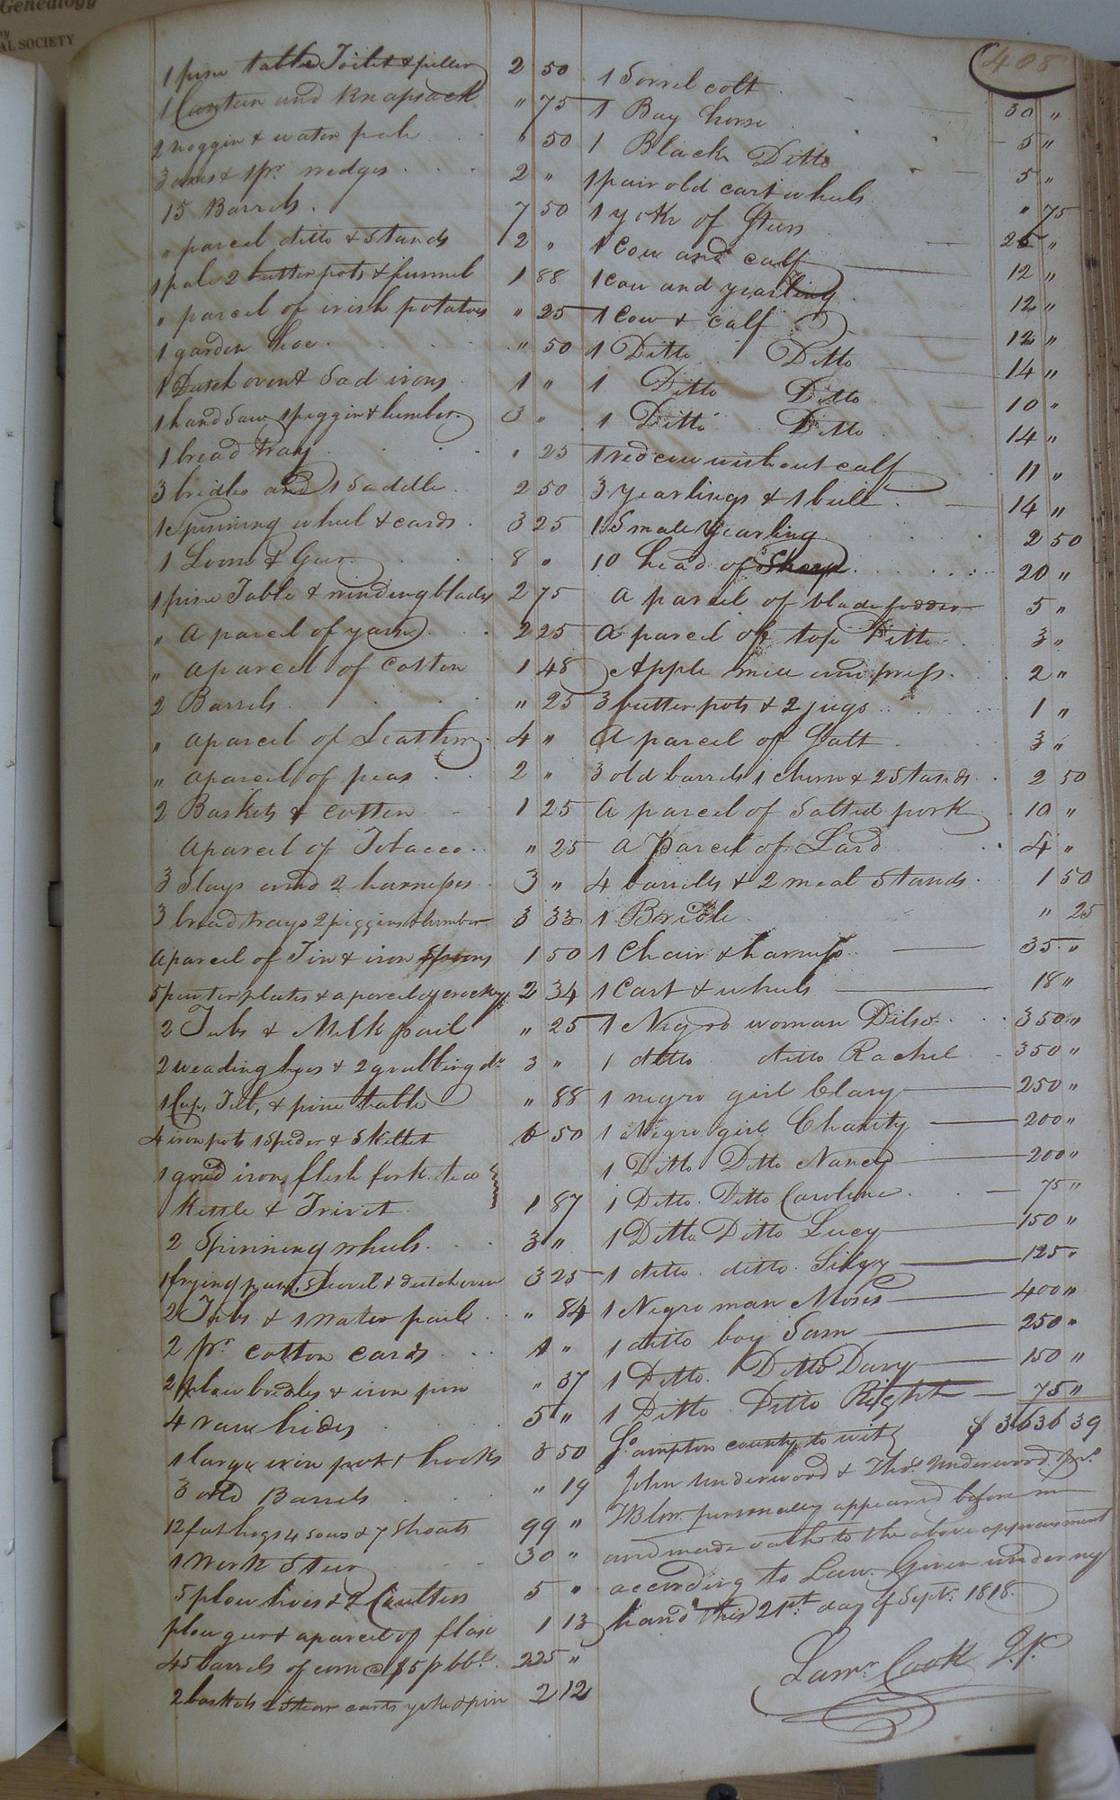 Genealogy
by
AL SOCIETY
408
1 pine table Toilet & piller 2 50
1 Canteen and Knapsack " 75
2 noggin & water pale 50
3 axes & 1 pr. wedges 2 "
15 Barrels 7 50
" parcel ditto & Stands 2 "
1 pale 2 butter pots & funnel 1 88
" parcel of irish potatoes " 25
1 garden hoe " 50
1 Dutch oven & Sad irons 1 "
1 hand Saw 1 piggin & lumber 3 "
1 bread tray " 25
3 bridles and 1 Saddle 2 50
1 Spinning wheel & cards 3 25
1 Loom & Gear 8 "
1 pine Table & winding blades 2 75
" a parcel of yarn 2 25
" a parcel of Cotton 1 48
2 Barrels " 25
" a parcel of Leather 4 "
" a parcel of peas 2 "
2 Baskets & cotton 1 25
a parcel of Tobacco " 25
3 Slays and 2 harnesses 3 "
3 bread trays 2 piggins & lumber 3 33
a parcel of Tin & iron Spoons 1 50
5 pewter plates & a parcel of crockery 2 34
2 Tubs & Milk pail " 25
2 weading hoes & 2 grubbing do 3 "
1 Cup, Tub, & pine table " 88
4 iron pots 1 Spider & Skillet 6 50
1 grid iron, flesh fork tea
Kettle & Trivet 1 87
2 Spinning wheels 3 "
1 frying pan, Shovel & dutch oven 3 25
2 Tubs & 1 water paile " 84
2 pr. cotton cards 1 "
2 plow bridles & iron pin " 37
4 raw hides 5 "
1 large iron pot & hooks 3 50
3 old Barrels " 19
12 fat hogs 4 sows & 7 Shoats 99 "
1 Work Steer 30 "
5 plow hoes & 2 Coulters 5 "
plow gear & a parcel of flax 1 13
45 barrels of corn @ $5 p bbl. 225 "
2 baskets 2 Steer carts yoke & pin 2 12
1 Sorrel colt 30 "
1 Bay horse 5 "
1 Black Ditto 5 "
1 pair old cart wheels " 75
1 yoke of Steers 25 "
1 Cow and calf 12 "
1 cow and yearling 12 "
1 Cow & calf 12 "
1 Ditto Ditto 14 "
1 Ditto Ditto 10 "
1 Ditto Ditto 14 "
1 red cow without calf 11 "
3 yearlings & 1 bull 14 "
1 Small Yearling 2 50
10 head of Sheep 20 "
a parcel of blade fodder 5 "
a parcel of top Ditto 3 "
Apple mill and press 2 "
3 butter pots & 2 jugs 1 "
a parcel of Salt 3 "
3 old barrels 1 churn & 2 Stands 2 50
a parcel of Salted pork 10 "
a Parcel of Lard 4 "
4 barrels & 2 meal Stands 1 50
1 Bridle " 25
1 Chair & harness 35 "
1 Cart & wheels 18 "
1 Negro woman Dilse 350 "
1 ditto ditto Rachel 350 "
1 negro girl Clary 250 "
1 Negro girl Charity 200 "
1 Ditto Ditto Nancy 200 "
1 Ditto Ditto Caroline 75 "
1 Ditto Ditto Lucy 150 "
1 ditto ditto Silvy 125 "
1 Negro man Moses 400 "
1 ditto boy Sam 250 "
1 Ditto Ditto Davy 150 "
1 Ditto Ditto Right 75 "
$ 3636 39
So. ampton county to wit
John Underwood & Thos. Underwood
personally appeared before me
and made oath to the above appraisement
according to Law. Given under my
hand this 21st. day of Sept. 1818.
Lamr. Cook J.P.